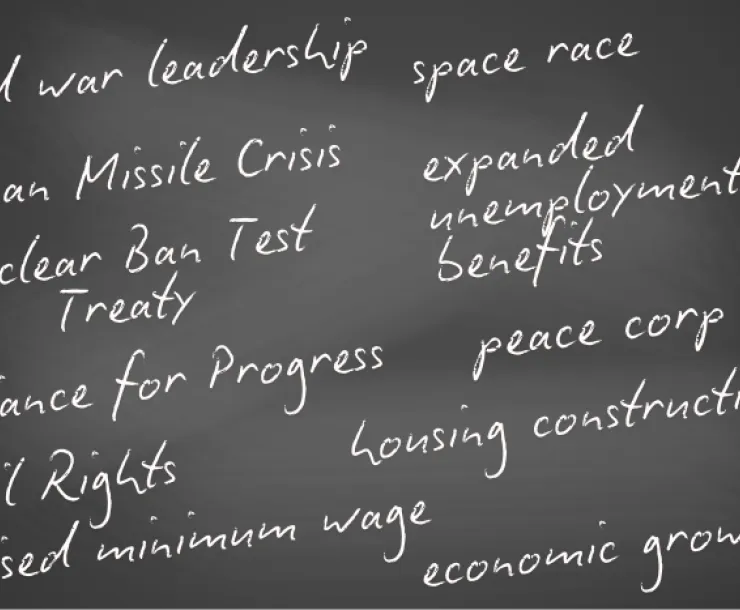 l war leadership
space race
an Missile Crisis
expanded
unemployment
benefits
clear Ban Test
Treaty
peace corp
iance for Progress
housing constructi
il Rights
ised minimum wage
economic grow